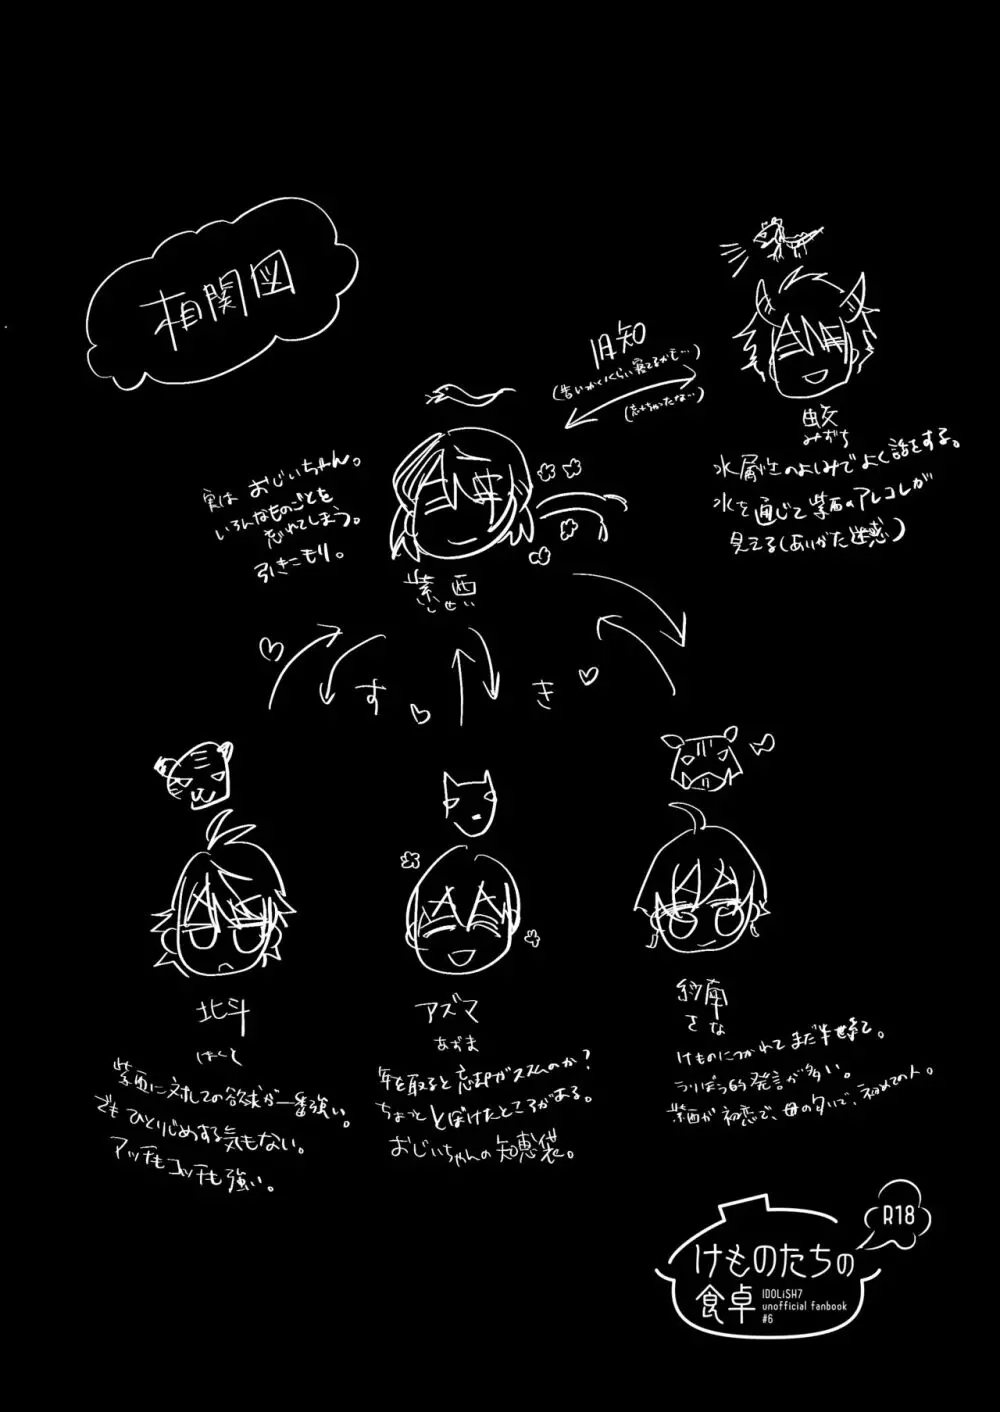 相関図
旧知
(忘れちゃったな…)
蛟
みずち
水属性のよしみでよく話をする。
水を通じて紫西のアレコレが
見えてる(ありがた迷惑)
実はおじいちゃん。
いろんなものごとを
忘れてしまう。
引きこもり。
紫西
しせい
すき
北斗
ほくと
紫西に対しての欲求が一番強い。
でもひとりじめする気もない。
アッチもコッチも強い。
アズマ
あずま
年を取ると忘却がススムのか?
ちょっととぼけたところがある。
おじいちゃんの知恵袋。
紗南
さな
けものにつかれてまだ半世紀。
らんぼう的発言が多い。
紫西が初恋で、母の匂いで、初めての人。
R18
けものたちの
食卓
IDOLiSH7
unofficial fanbook
#6